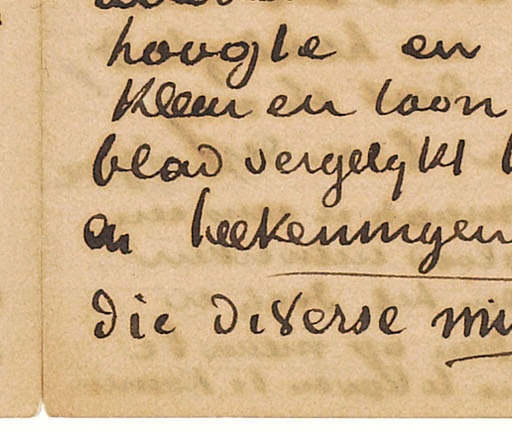 hoogte en
kleur en toon
blad vergelykt
en teekeningen
die diverse